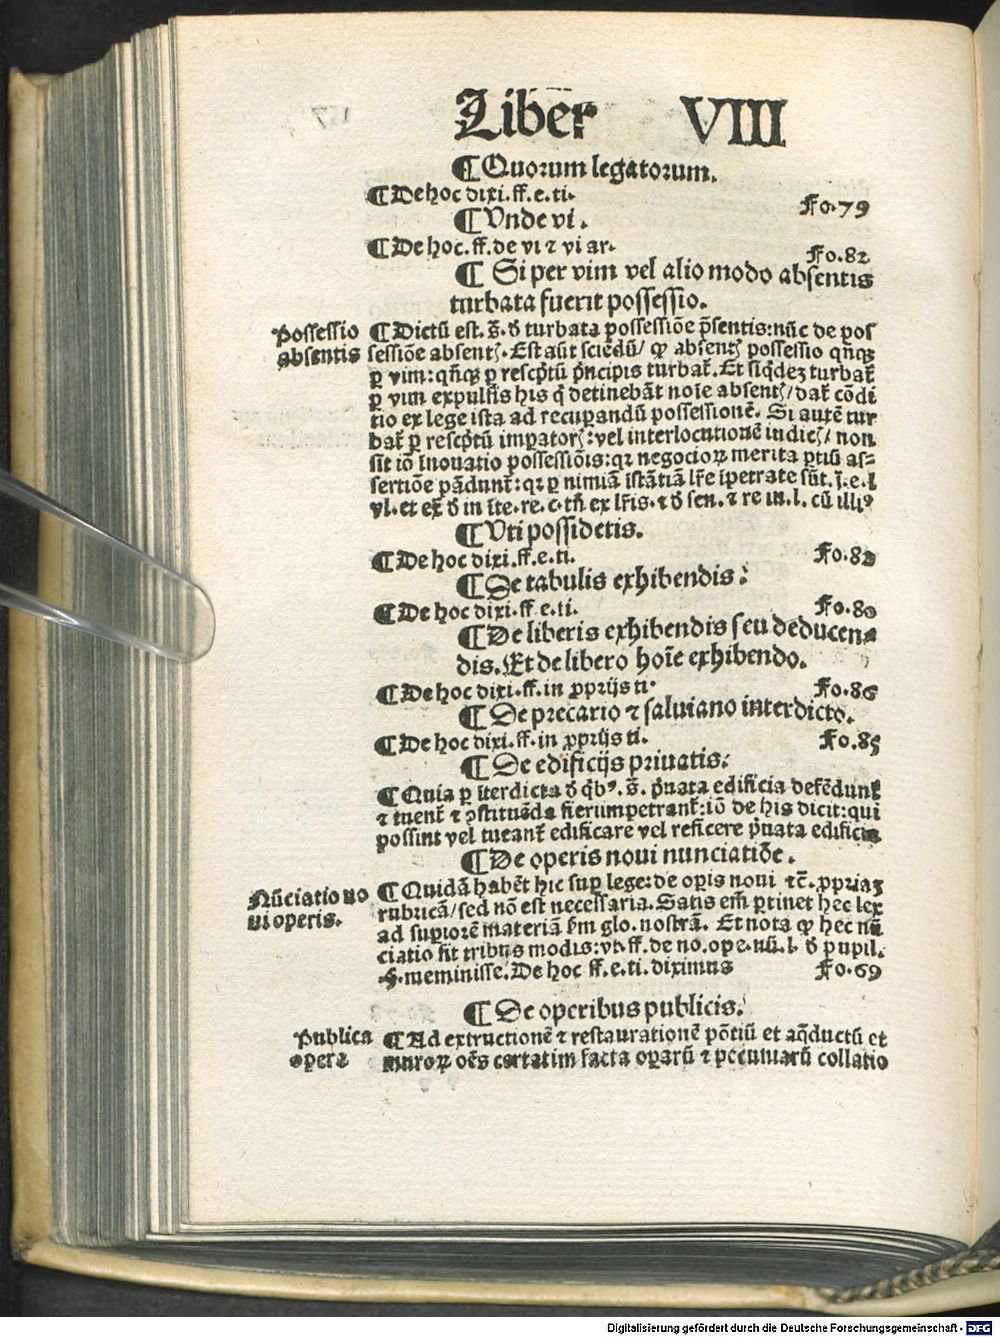 Liber VIII
¶ Quorum legatorum.
¶ De hoc dixi.ff.e.ti. Fo.79
¶ Vnde vi.
¶ De hoc.ff.de vi ⁊ vi ar. Fo.82
¶ Si per vim vel alio modo absentis
turbata fuerit possessio.
Possessio
absentis
¶ Dictū est.s̄.ð turbata possessiōe p̄sentis:nūc de pos
sessiōe absentꝭ. Est aūt sciēdū/ ꝙ absentꝭ possessio qn̄qꝫ
ꝑ vim:qn̄qꝫ ꝑ rescp̄tū pͥncipis turbat̄. Et siqͥdeꝫ turbat̄
ꝑ vim expulsis his qͥ detinebāt noīe absentꝭ/dat̄ cōdi
tio ex lege ista ad recuꝑandū possessionē. Si autē tur
bat̄ ꝑ rescp̄tū impatorꝭ:vel interlocutionē iudicꝭ/ non
sit iō īnouatio possessiōis:qꝛ negocioꝝ merita ꝑtiū as-
sertiōe pādunt̄:qꝛ ꝑ nimiā īstātiā lr̄e īpetrate sūt.j.e.l
vl.et ex̄ ð in īte.re.c.tn̄ ex lr̄is.⁊ ð sen.⁊ re iu.l.cū illiꝰ
¶ Vti possidetis.
¶ De hoc dixi.ff.e.ti. Fo.83
¶ De tabulis exhibendis.
¶ De hoc dixi.ff e.ti. Fo.80
¶ De liberis exhibendis seu deducen-
dis. Et de libero hoīe exhibendo.
¶ De hoc dixi.ff.in ꝓprijs ti. Fo.86
¶ De precario ⁊ saluiano interdicto.
¶ De hoc dixi.ff.in ꝓprijs ti. Fo.85
¶ De edificijs priuatis.
¶ Quia ꝑ īterdicta ð qͥbꝰ.s̄.pͥuata edificia defēdunt̄
⁊ tuent̄ ⁊ ꝯstituēda sierumpetrant̄:iō de his dicit:qui
possint vel tueant̄ edificare vel reficere pͥuata edificia
¶ De operis noui nunciatiōe.
Nūciatio no
ui operis.
¶ Quidā habēt hic suꝑ lege:de oꝑis noui ⁊c̄.ꝓpriaꝫ
rubricā/sed nō est necessaria. Satis em̄ ꝑtinet hec lex
ad supiorē materiā ẜm glo.nostrā. Et nota ꝙ hec nū
ciatio fit tribus modis:vt.ff.de no.ope.nū.l. ð pupil.
§.meminisse. De hoc ff.e.ti.diximus Fo.69
¶ De operibus publicis.
Publica
opera
¶ Ad extructionē ⁊ restaurationē pōtiū et aq̄ductū et
muroꝝ oēs certatim facta oꝑarū ⁊ pecuniarū collatio
Digitalisierung gefördert durch die Deutsche Forschungsgemeinschaft - DFG